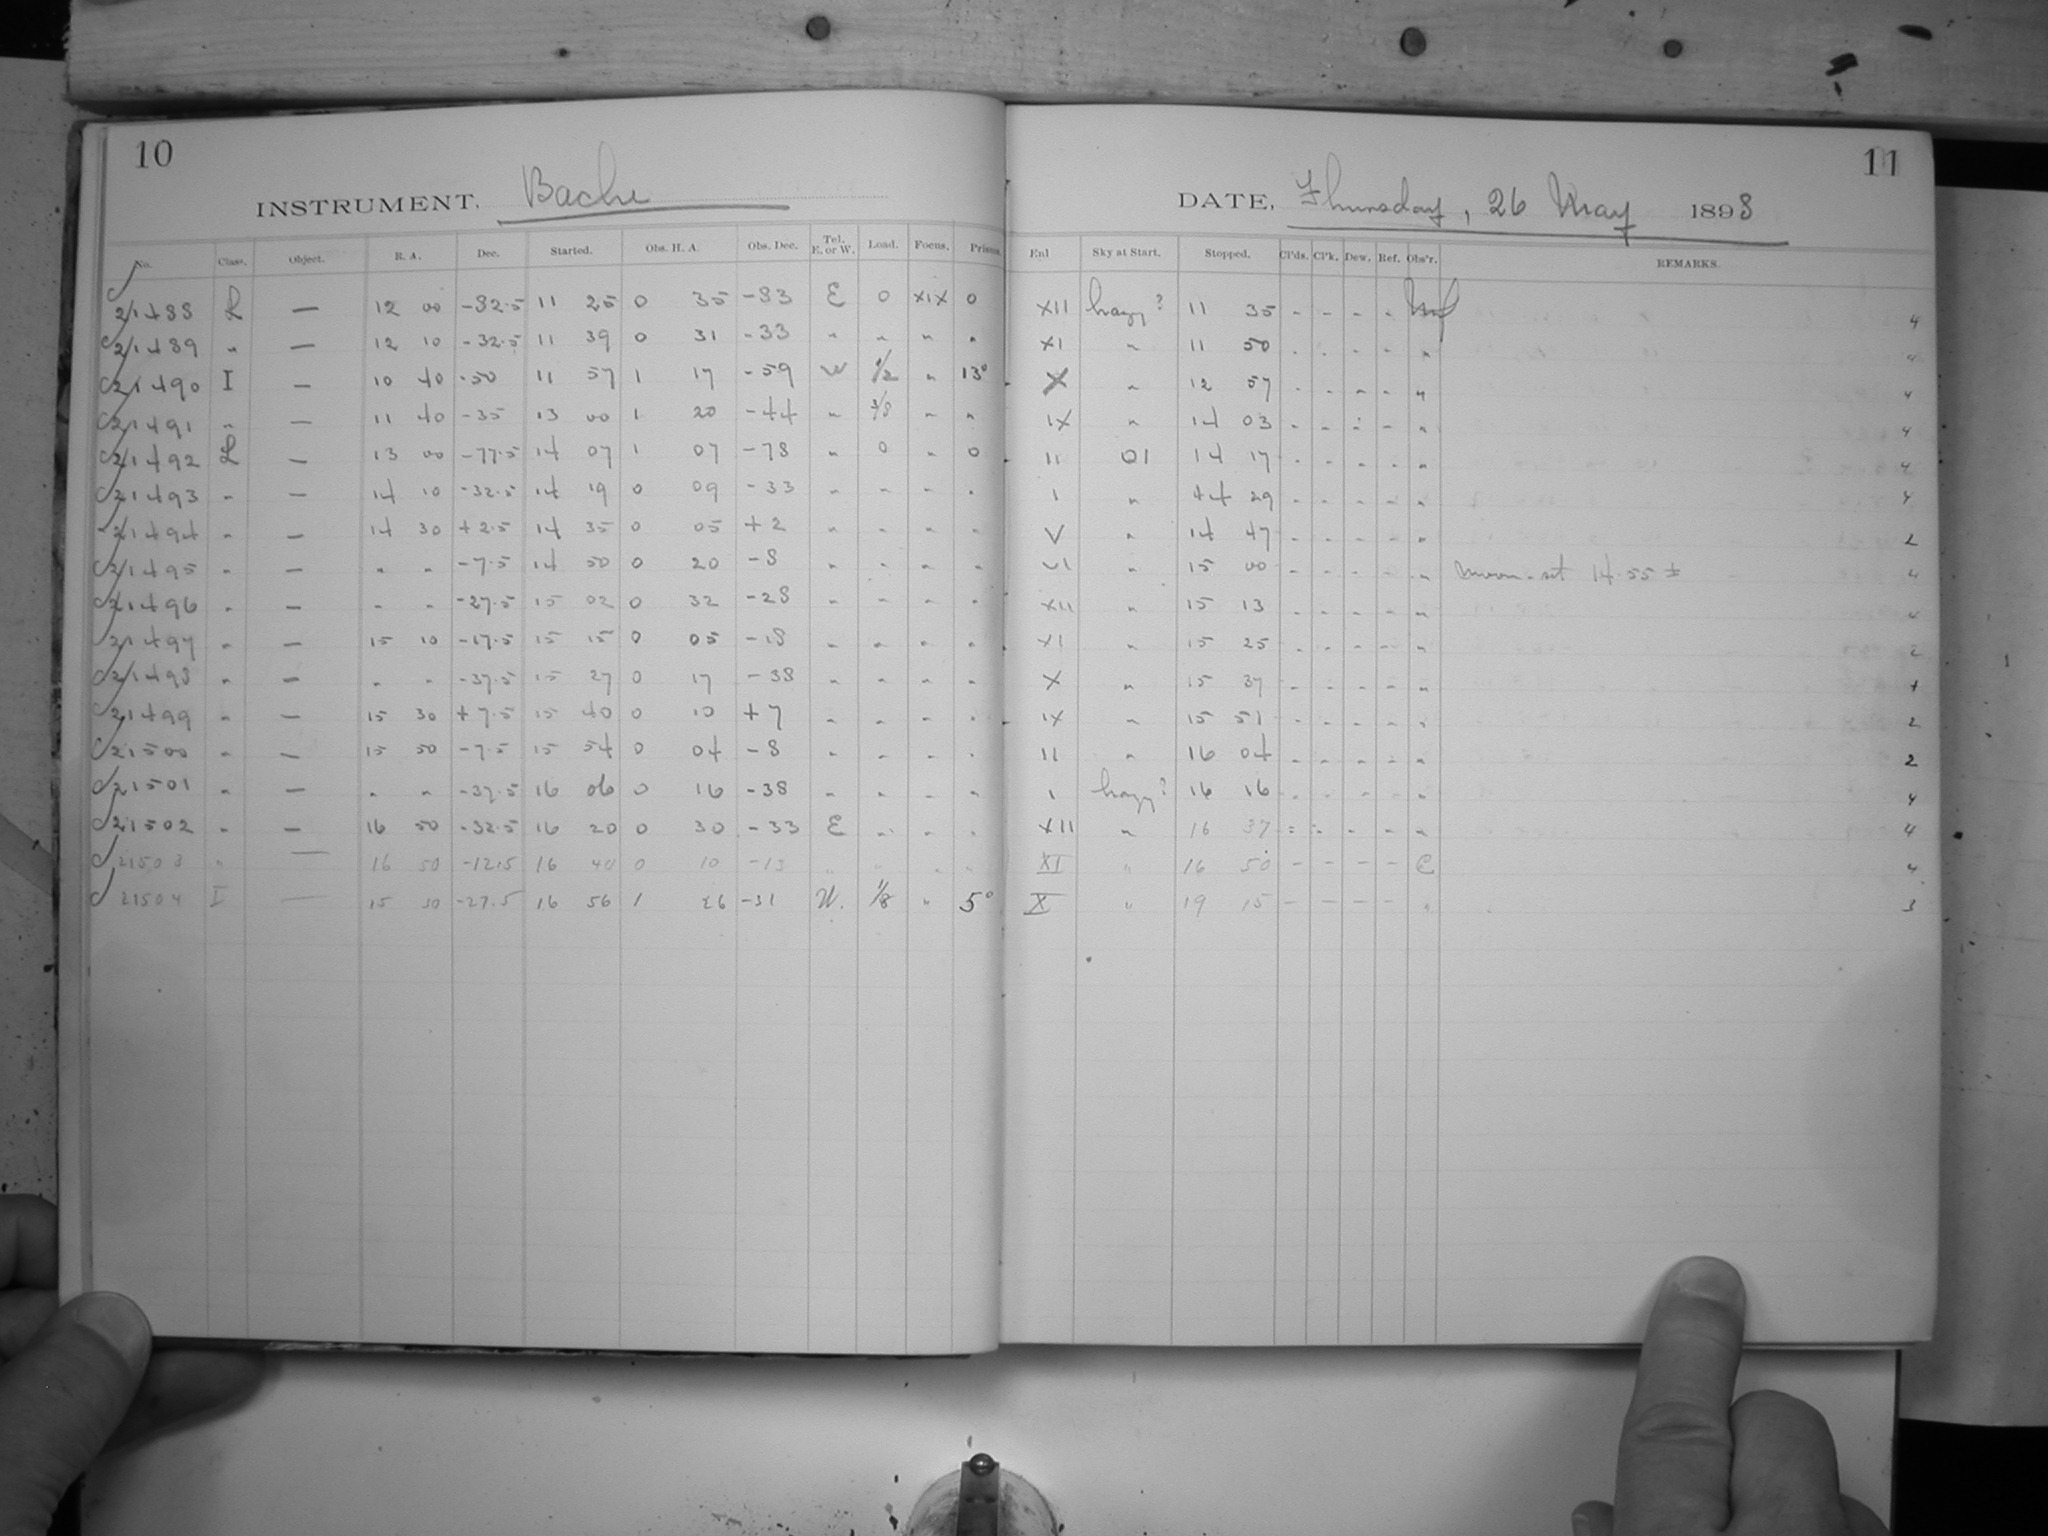 10
11
INSTRUMENT. Bache
DATE, Thursday, 26 May 1898
No. Class. Object. R. A. Dec. Started. Obs. H. A. Obs. Dec. Tel. E. or W. Load. Focus. Prisms. Enl Sky at Start. Stopped. Cl'ds. Cl'k. Dew. Ref. Obs'r. REMARKS.
21488 L — 12 00 -82.5 11 25 0 35 -83 E 0 XIX 0 XII hazy? 11 35 - - - - 4
21489 " — 12 10 -32.5 11 39 0 31 -33 " " " " XI " 11 50 - - - - " 4
21490 I — 10 40 -50 11 57 1 17 -59 W 1/2 " 13° X " 12 57 - - - - " 4
21491 " — 11 40 -35 13 00 1 20 -44 " 3/8 " " IX " 14 03 - - - - " 4
21492 L — 13 00 -77.5 14 07 1 07 -78 " 0 " 0 II 01 14 17 - - - - " 4
21493 " — 14 10 -32.5 14 19 0 09 -33 " " " " I " 14 29 - - - - " 4
21494 " — 14 30 +2.5 14 35 0 05 +2 " " " " V " 14 47 - - - - " 2
21495 " — " " -7.5 14 50 0 20 -8 " " " " VI " 15 00 - - - - " moon-set 14.55 ± 2
21496 " — " " -27.5 15 02 0 32 -28 " " " " XII " 15 13 - - - - " 4
21497 " — 15 10 -17.5 15 15 0 05 -18 " " " " XI " 15 25 - - - - " 2
21498 " — " " -37.5 15 27 0 17 -38 " " " " X " 15 37 - - - - " 4
21499 " — 15 30 +7.5 15 40 0 10 +7 " " " " IX " 15 51 - - - - " 2
21500 " — 15 50 -7.5 15 54 0 04 -8 " " " " II " 16 04 - - - - " 2
21501 " — " " -37.5 16 06 0 16 -38 " " " " I hazy? 16 16 - - - - " 4
21502 " — 16 50 -32.5 16 20 0 30 -33 E " " " XII " 16 37 - - - - " 4
21503 " — 16 50 -12.5 16 40 0 10 -13 " " " " XI " 16 50 - - - - C 4
21504 I — 15 30 -27.5 16 56 1 26 -31 W. 1/8 " 5° X " 19 15 - - - - " 3